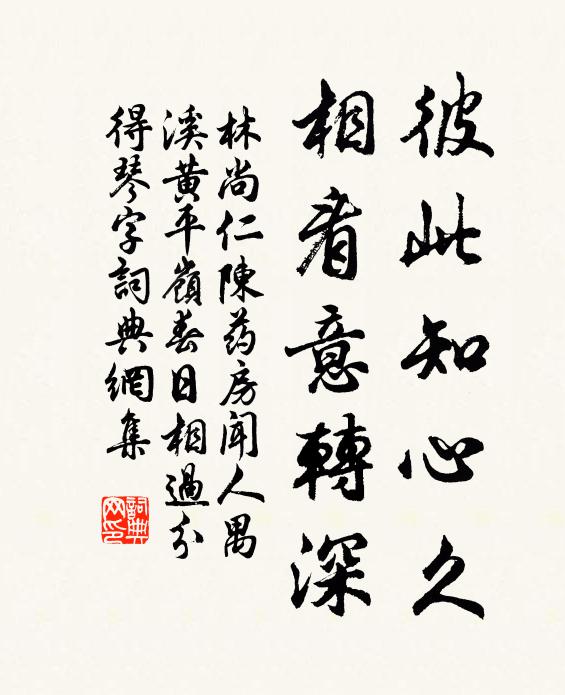 彼此知心久
相看意轉深
林尚仁陳药房聞人禺
溪黄平嶺春日相過分
得琴字詞典網集
詞典
网印